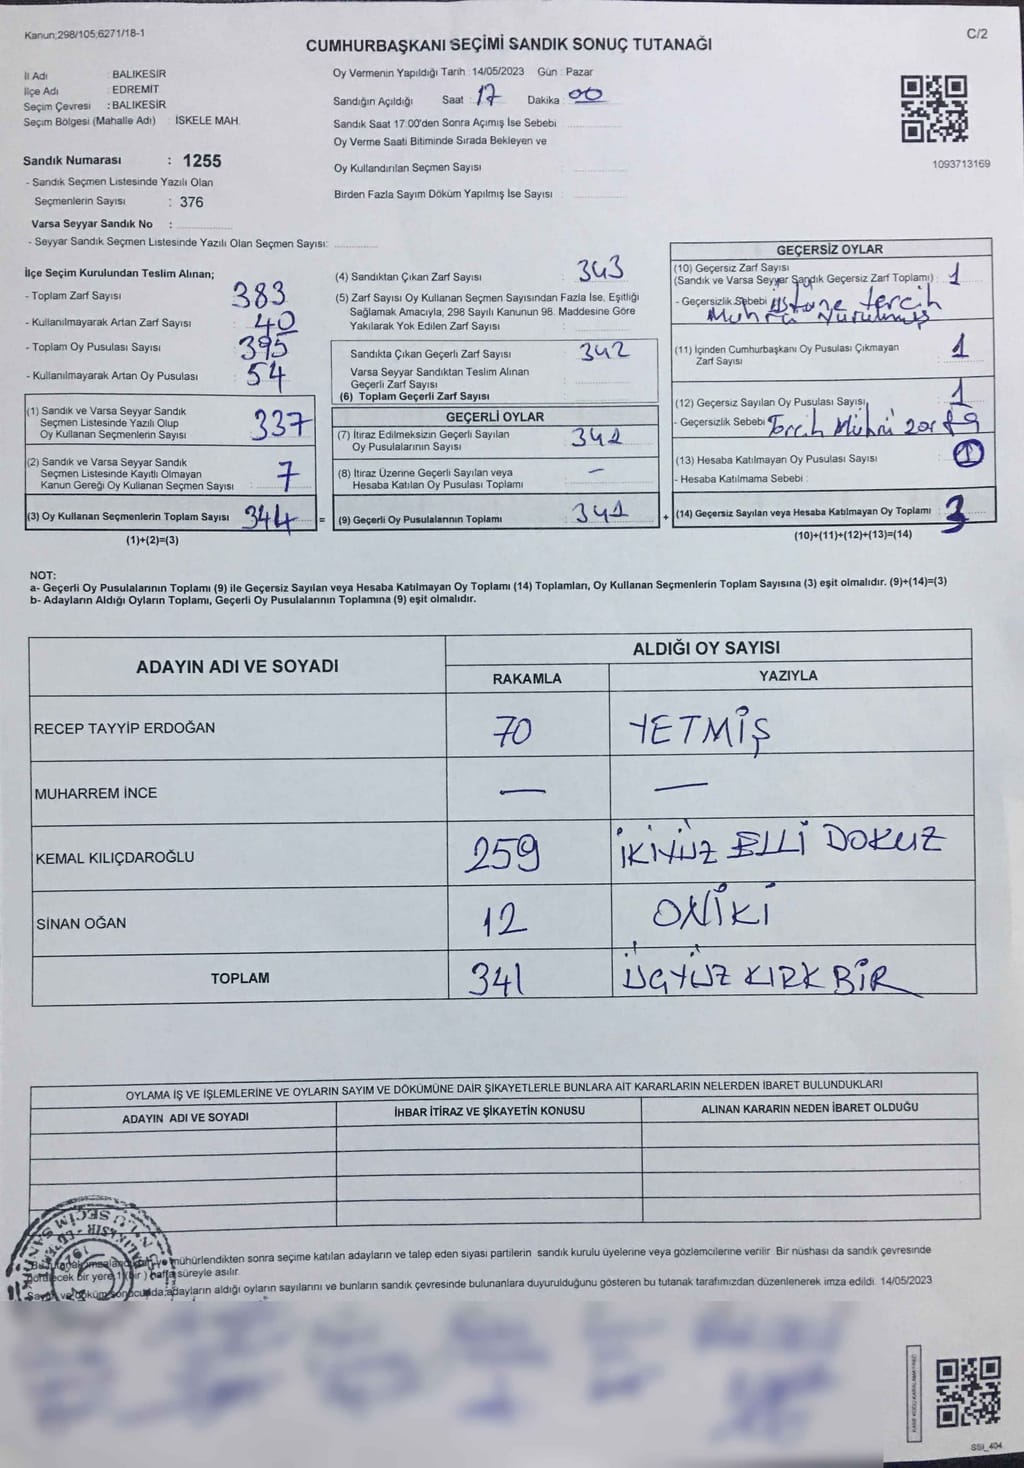 Kanun;298/105;6271/18-1
C/2
CUMHURBAŞKANI SEÇİMİ SANDIK SONUÇ TUTANAĞI
İl Adı : BALIKESİR
İlçe Adı : EDREMİT
Seçim Çevresi : BALIKESİR
Seçim Bölgesi (Mahalle Adı) : İSKELE MAH.
Oy Vermenin Yapıldığı Tarih : 14/05/2023 Gün : Pazar
Sandığın Açıldığı Saat : 17 Dakika : 00
Sandık Saat 17:00'den Sonra Açımış İse Sebebi
Oy Verme Saati Bitiminde Sırada Bekleyen ve
Oy Kullandırılan Seçmen Sayısı
Birden Fazla Sayım Döküm Yapılmış İse Sayısı
1093713169
Sandık Numarası : 1255
- Sandık Seçmen Listesinde Yazılı Olan
Seçmenlerin Sayısı : 376
Varsa Seyyar Sandık No :
- Seyyar Sandık Seçmen Listesinde Yazılı Olan Seçmen Sayısı:
İlçe Seçim Kurulundan Teslim Alınan;
- Toplam Zarf Sayısı : 383
- Kullanılmayarak Artan Zarf Sayısı : 40
- Toplam Oy Pusulası Sayısı : 395
- Kullanılmayarak Artan Oy Pusulası : 54
(1) Sandık ve Varsa Seyyar Sandık
Seçmen Listesinde Yazılı Olup
Oy Kullanan Seçmenlerin Sayısı : 337
(2) Sandık ve Varsa Seyyar Sandık
Seçmen Listesinde Kayıtlı Olmayan
Kanun Gereği Oy Kullanan Seçmen Sayısı : 7
(3) Oy Kullanan Seçmenlerin Toplam Sayısı : 344 =
(1)+(2)=(3)
(4) Sandıktan Çıkan Zarf Sayısı : 343
(5) Zarf Sayısı Oy Kullanan Seçmen Sayısından Fazla İse, Eşitliği
Sağlamak Amacıyla, 298 Sayılı Kanunun 98. Maddesine Göre
Yakılarak Yok Edilen Zarf Sayısı :
Sandıkta Çıkan Geçerli Zarf Sayısı : 342
Varsa Seyyar Sandıktan Teslim Alınan
Geçerli Zarf Sayısı
(6) Toplam Geçerli Zarf Sayısı :
GEÇERLİ OYLAR
(7) İtiraz Edilmeksizin Geçerli Sayılan
Oy Pusulalarının Sayısı : 341
(8) İtiraz Üzerine Geçerli Sayılan veya
Hesaba Katılan Oy Pusulası Toplamı : —
(9) Geçerli Oy Pusulalarının Toplamı : 341 +
GEÇERSİZ OYLAR
(10) Geçersiz Zarf Sayısı
(Sandık ve Varsa Seyyar Sandık Geçersiz Zarf Toplamı) : 1
- Geçersizlik Sebebi : Üstüne tercih
Mührü Vurulmuş
(11) İçinden Cumhurbaşkanı Oy Pusulası Çıkmayan
Zarf Sayısı : 1
(12) Geçersiz Sayılan Oy Pusulası Sayısı : 1
- Geçersizlik Sebebi : Tercih Mührü
(13) Hesaba Katılmayan Oy Pusulası Sayısı : 1
- Hesaba Katılmama Sebebi :
(14) Geçersiz Sayılan veya Hesaba Katılmayan Oy Toplamı : 3
(10)+(11)+(12)+(13)=(14)
NOT:
a- Geçerli Oy Pusulalarının Toplamı (9) ile Geçersiz Sayılan veya Hesaba Katılmayan Oy Toplamı (14) Toplamları, Oy Kullanan Seçmenlerin Toplam Sayısına (3) eşit olmalıdır. (9)+(14)=(3)
b- Adayların Aldığı Oyların Toplamı, Geçerli Oy Pusulalarının Toplamına (9) eşit olmalıdır.
ADAYIN ADI VE SOYADI
ALDIĞI OY SAYISI
RAKAMLA YAZIYLA
RECEP TAYYİP ERDOĞAN 70 YETMİŞ
MUHARREM İNCE — —
KEMAL KILIÇDAROĞLU 259 İKİYÜZ ELLİ DOKUZ
SİNAN OĞAN 12 ONİKİ
TOPLAM 341 ÜÇYÜZ KIRK BİR
OYLAMA İŞ VE İŞLEMLERİNE VE OYLARIN SAYIM VE DÖKÜMÜNE DAİR ŞİKAYETLERLE BUNLARA AİT KARARLARIN NELERDEN İBARET BULUNDUKLARI
ADAYIN ADI VE SOYADI İHBAR İTİRAZ VE ŞİKAYETİN KONUSU ALINAN KARARIN NEDEN İBARET OLDUĞU
mühürlendikten sonra seçime katılan adayların ve talep eden siyasi partilerin sandık kurulu üyelerine veya gözlemcilerine verilir. Bir nüshası da sandık çevresinde
bir yere 1 (bir) hafta süreyle asılır.
Sayım ve döküm sonucunda, adayların aldığı oyların sayılarını ve bunların sandık çevresinde bulunanlara duyurulduğunu gösteren bu tutanak tarafımızdan düzenlenerek imza edildi. 14/05/2023
SSI_404